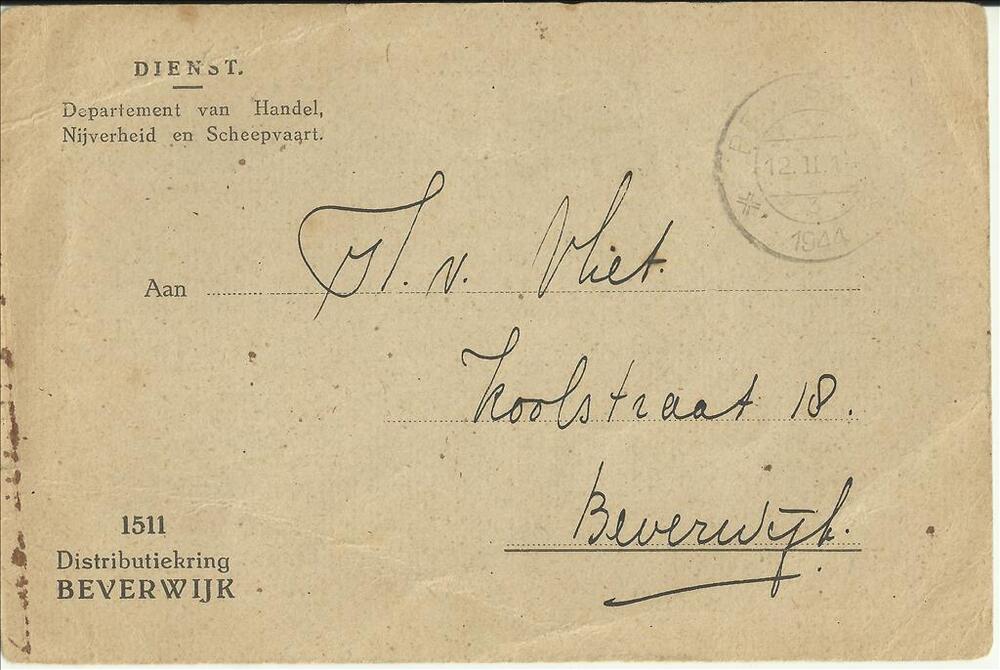 DIENST.
Departement van Handel,
Nijverheid en Scheepvaart.
12.II.1
3
1944
Aan H. v. Vliet.
Koolstraat 18.
Beverwijk.
1511
Distributiekring
BEVERWIJK